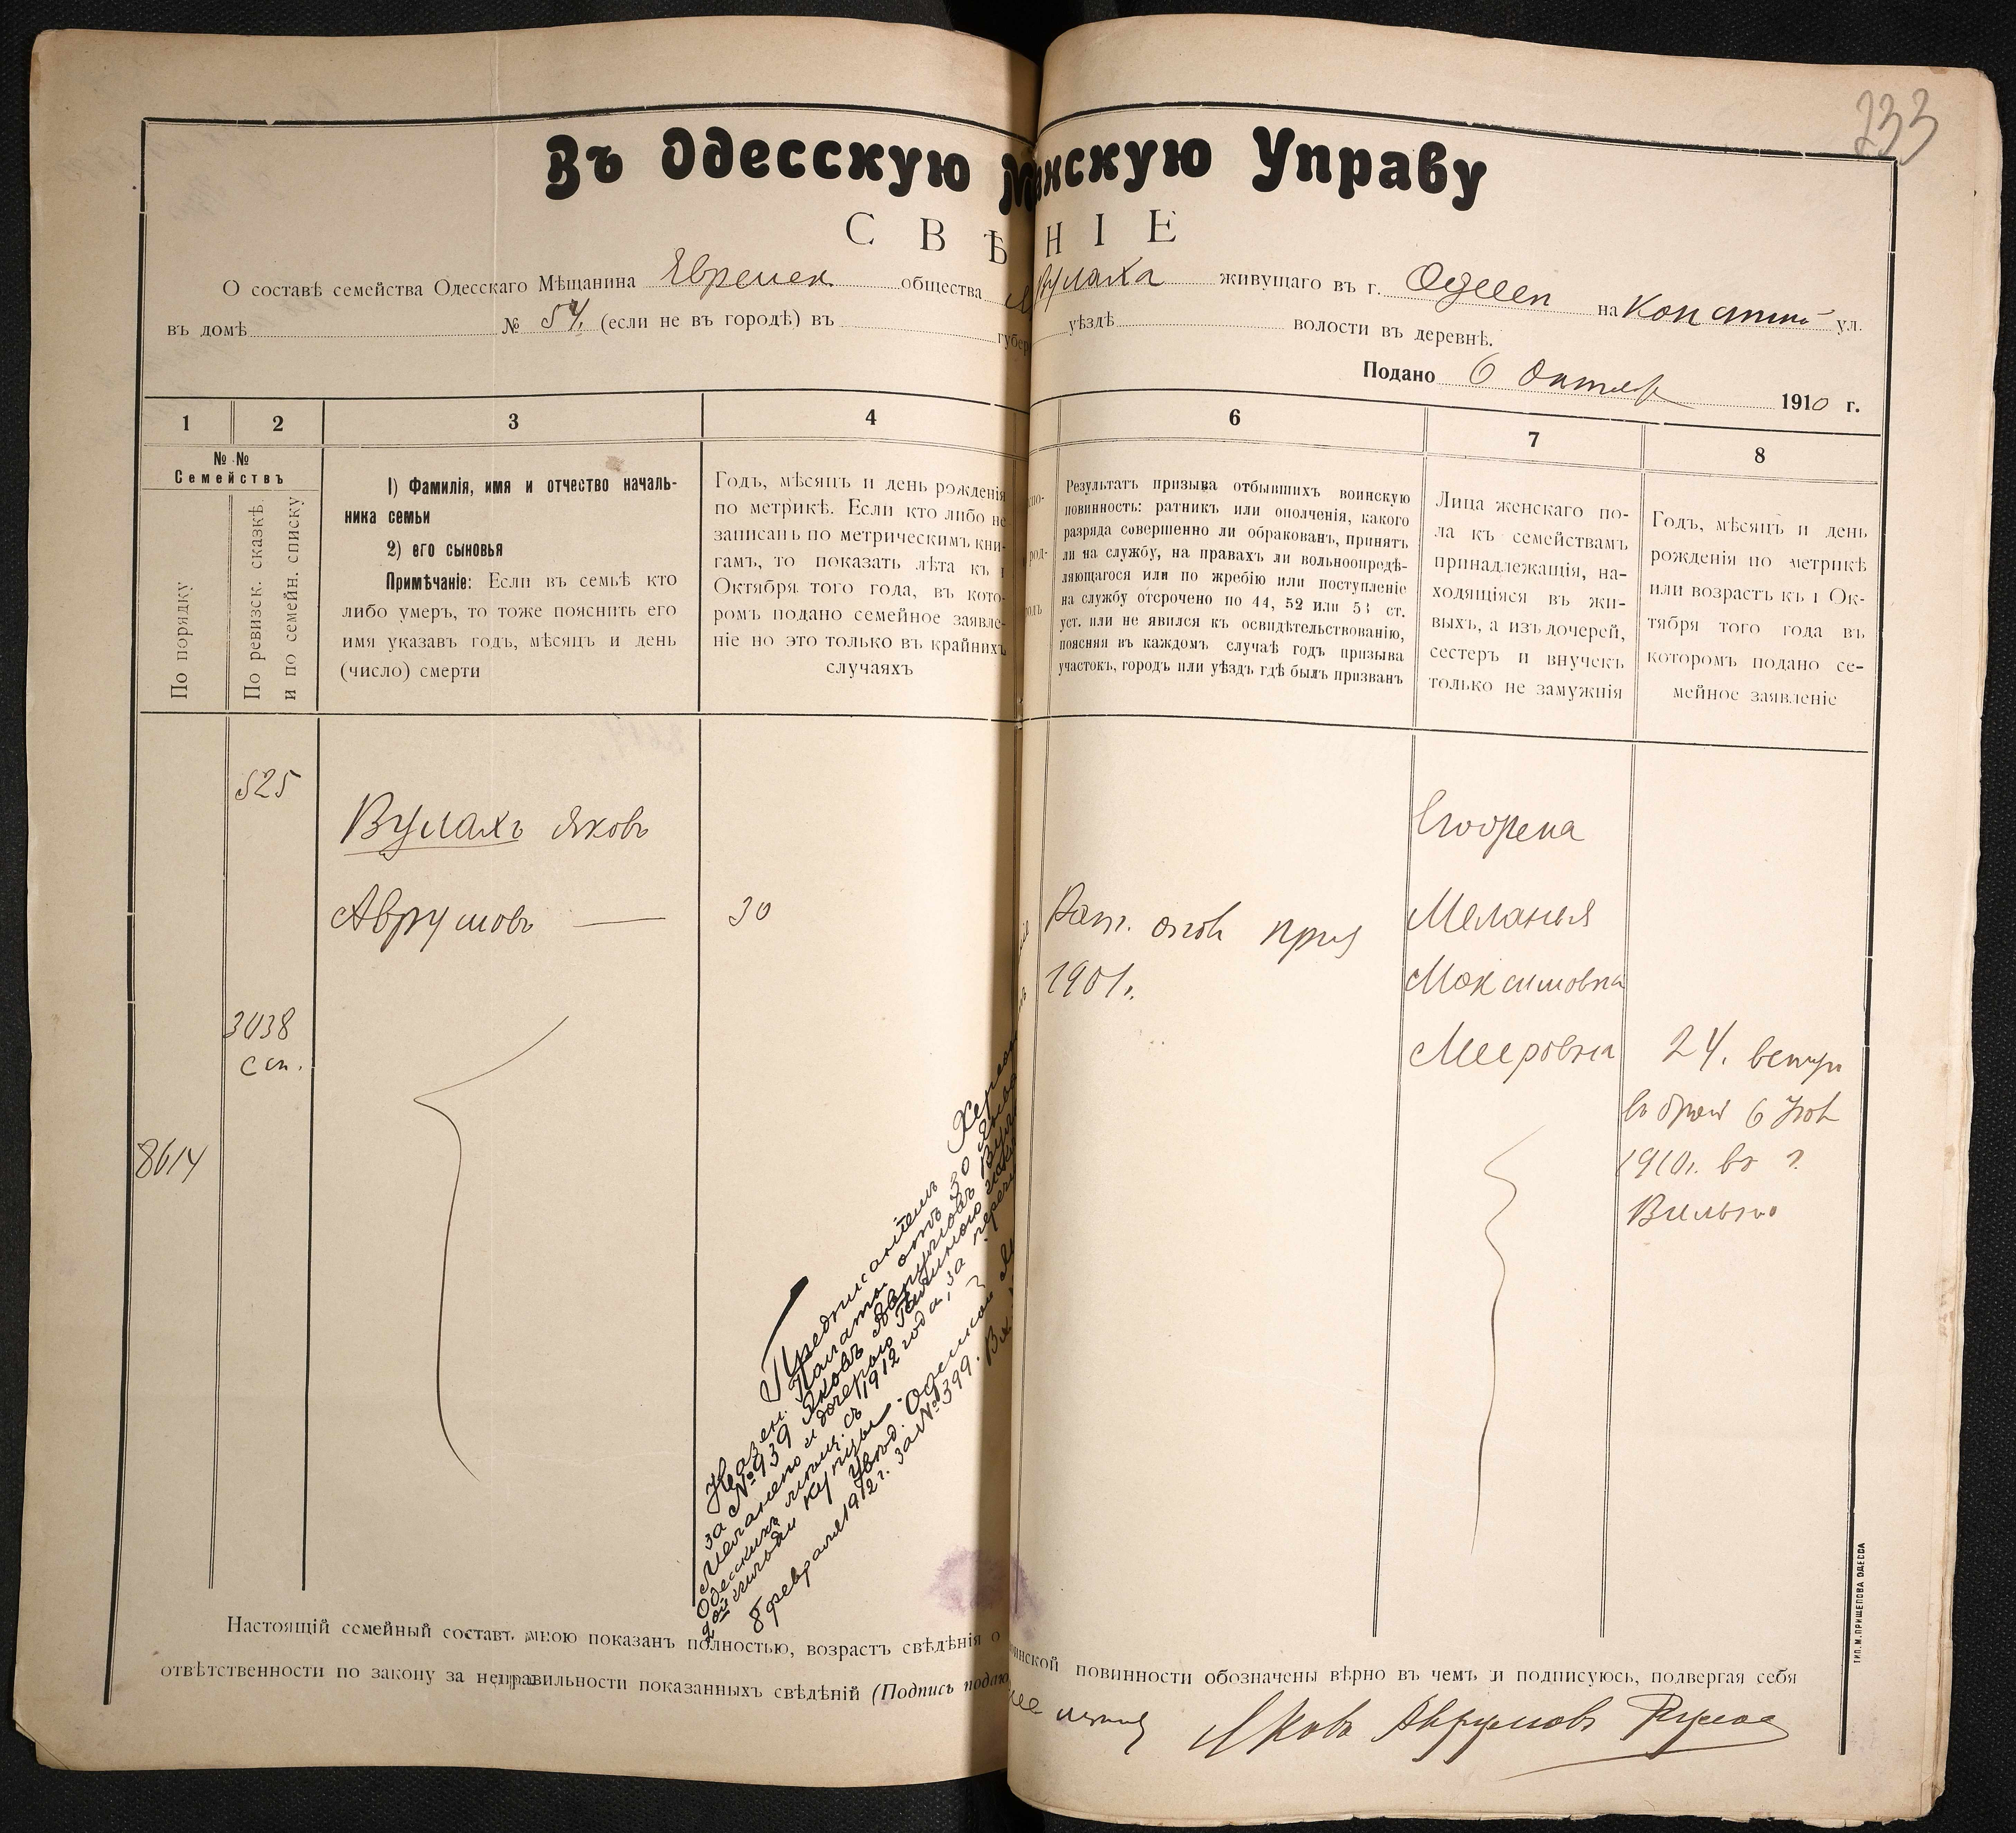 233
Въ Одесскую М нскую Управу
СВѢ НІЕ
О составѣ семейства Одесскаго Мѣщанина Евреиск. общества Вулаха живущаго въ г. Одессѣ на ул.
въ домѣ № 54. (если не въ городѣ) въ губер уѣздѣ волости въ деревнѣ.
Подано 6 Октябр 1910 г.
1 2 3 4 6 7 8
№ №
Семействъ
По порядку
По ревизск. сказкѣ.
и по семейн. списку
1) Фамилія, имя и отчество началь-
ника семьи
2) его сыновья
Примѣчаніе: Если въ семьѣ кто
либо умеръ, то тоже пояснить его
имя указавъ годъ, мѣсяцъ и день
(число) смерти
Годъ, мѣсяцъ и день рожденія
по метрикѣ. Если кто либо не
записанъ по метрическимъ кни-
гамъ, то показать лѣта къ 1
Октября того года, въ кото-
ромъ подано семейное заявле-
ніе но это только въ крайнихъ
случаяхъ
Результатъ призыва отбывшихъ воинскую
повинность: ратникъ или ополченія, какого
разряда совершенно ли обракованъ, принятъ
ли на службу, на правахъ ли вольноопредѣ-
ляющагося или по жребію или поступленіе
на службу отсрочено по 44, 52 или 53 ст.
уст. или не явился къ освидѣтельствованію,
поясняя въ каждомъ случаѣ годъ призыва
участокъ, городъ или уѣздъ гдѣ былъ призванъ
Лица женскаго по-
ла къ семействамъ
принадлежащія, на-
ходящіяся въ жи-
выхъ, а изъ дочерей,
сестеръ и внучекъ
только не замужнія
Годъ, мѣсяцъ и день
рожденія по метрикѣ
или возрастъ къ 1 Ок-
тября того года въ
которомъ подано се-
мейное заявленіе
525
Вулахъ Яковъ
Аврумовъ — 30
Рат. опол
1901 г.
Меланья
Максимовна
Мееровна
3038
с сп.
8614
24. вступ
въ бракъ 6
1910 г. въ г.
Вильно
Предписаніемъ Херсон
Казен. Палаты отъ 30 Янва
за № 939 Яковъ Аврумовъ Вулах
Одесскихъ мѣщ. съ 1912 года, за переч
2ой гильдіи купцы — Одесской
8 февраля 1912 г. за № 399.
Настоящій семейный составъ мною показанъ полностью, возрастъ свѣдѣнія о инской повинности обозначены вѣрно въ чемъ и подписуюсь, подвергая себя
отвѣтственности по закону за неправильности показанныхъ свѣдѣній (Подпись подаю
Яковъ Аврумовъ Вулах
ТИП. М. ПРИЩЕПОВА ОДЕССА